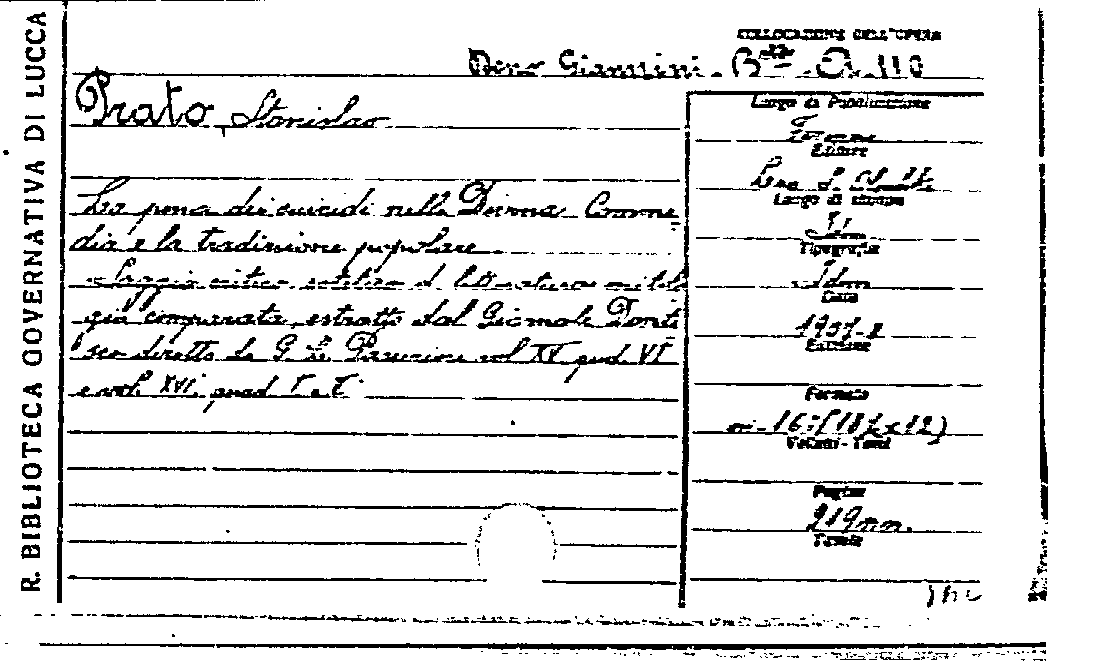 R. BIBLIOTECA GOVERNATIVA DI LUCCA
COLLOCAZIONE DELL'OPERA
Dono Giannini. B.
Prato, Stanislao
La pena dei suicidi nella Divina Comme
dia e la tradizione popolare
Saggio critico di letteratura mitolo
gia comparata, estratto dal Giornale Dante
sco diretto da G. L. Passerini vol XV quad VI
e vol. XVI, quad I e
Luogo di Pubblicazione
Firenze
Editore
Leo S. Olschki
Luogo di stampa
Tipografia
Idem
Data
Edizione
Formato
in-16
Volumi - Tomi
Pagine
Tavole